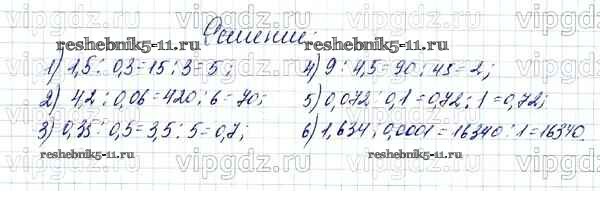 vipgdz.ru vipgdz.ru vipgdz.ru vipgdz.ru
Решение:
reshebnik5-11.ru reshebnik5-11.ru
1) 1,5 : 0,3 = 15 : 3 = 5; 4) 9 : 4,5 = 90 : 45 = 2;
2) 4,2 : 0,06 = 420 : 6 = 70; 5) 0,072 : 0,1 = 0,72 : 1 = 0,72;
3) 0,35 : 0,5 = 3,5 : 5 = 0,7; 6) 1,634 : 0,0001 = 16340 : 1 = 16340.
reshebnik5-11.ru reshebnik5-11.ru
vipgdz.ru vipgdz.ru vipgdz.ru vipgdz.ru